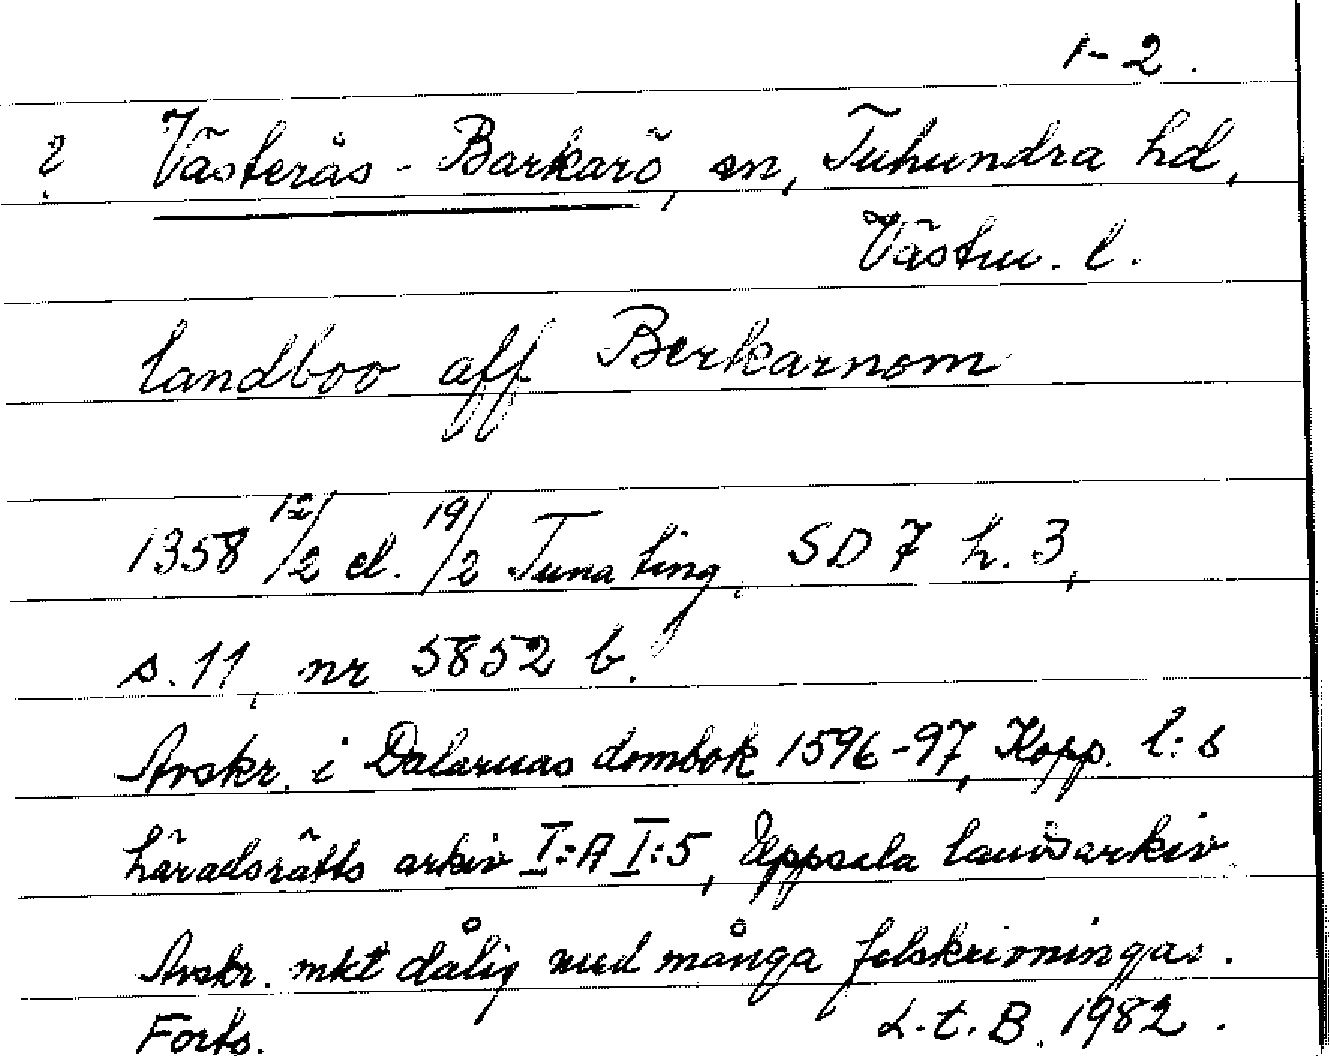 1-2.
? Västerås-Barkarö, sn, Tuhundra hd,
Västm. l.
landboo aff Berkarnom
1358 12/2 el. 19/2 Tuna ting, SD 7 h. 3,
s. 11, nr 5852 b.
Avskr. i Dalarnas dombok 1596-97, Kopp. l:s
häradsrätts arkiv I:A I:5, Uppsala landsarkiv.
Avskr. mkt dålig med många felskrivningar.
Forts. L.t.B. 1982.